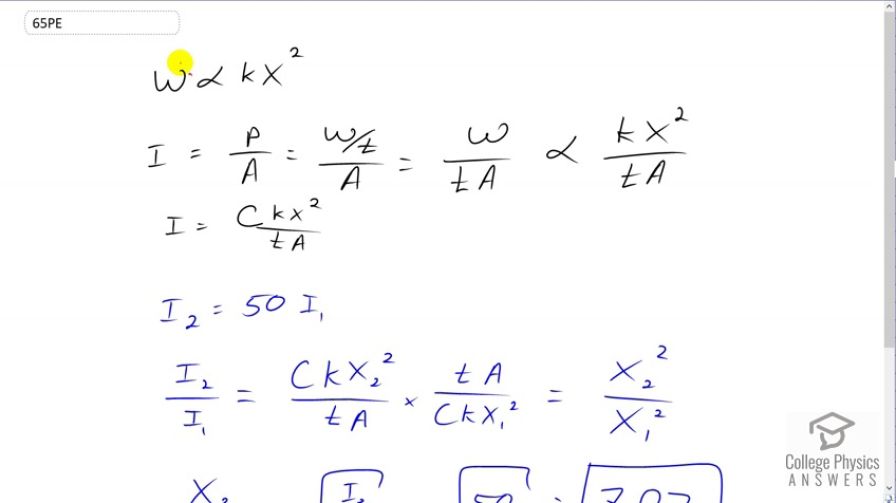 65PE
W ∝ kX²
I = P/A = (W/t)/A = W/(tA) ∝ kX²/(tA)
I = CkX²/(tA)
I₂ = 50 I₁
I₂/I₁ = CkX₂²/(tA) × tA/(CkX₁²) = X₂²/X₁²
College Physics
ANSWERS